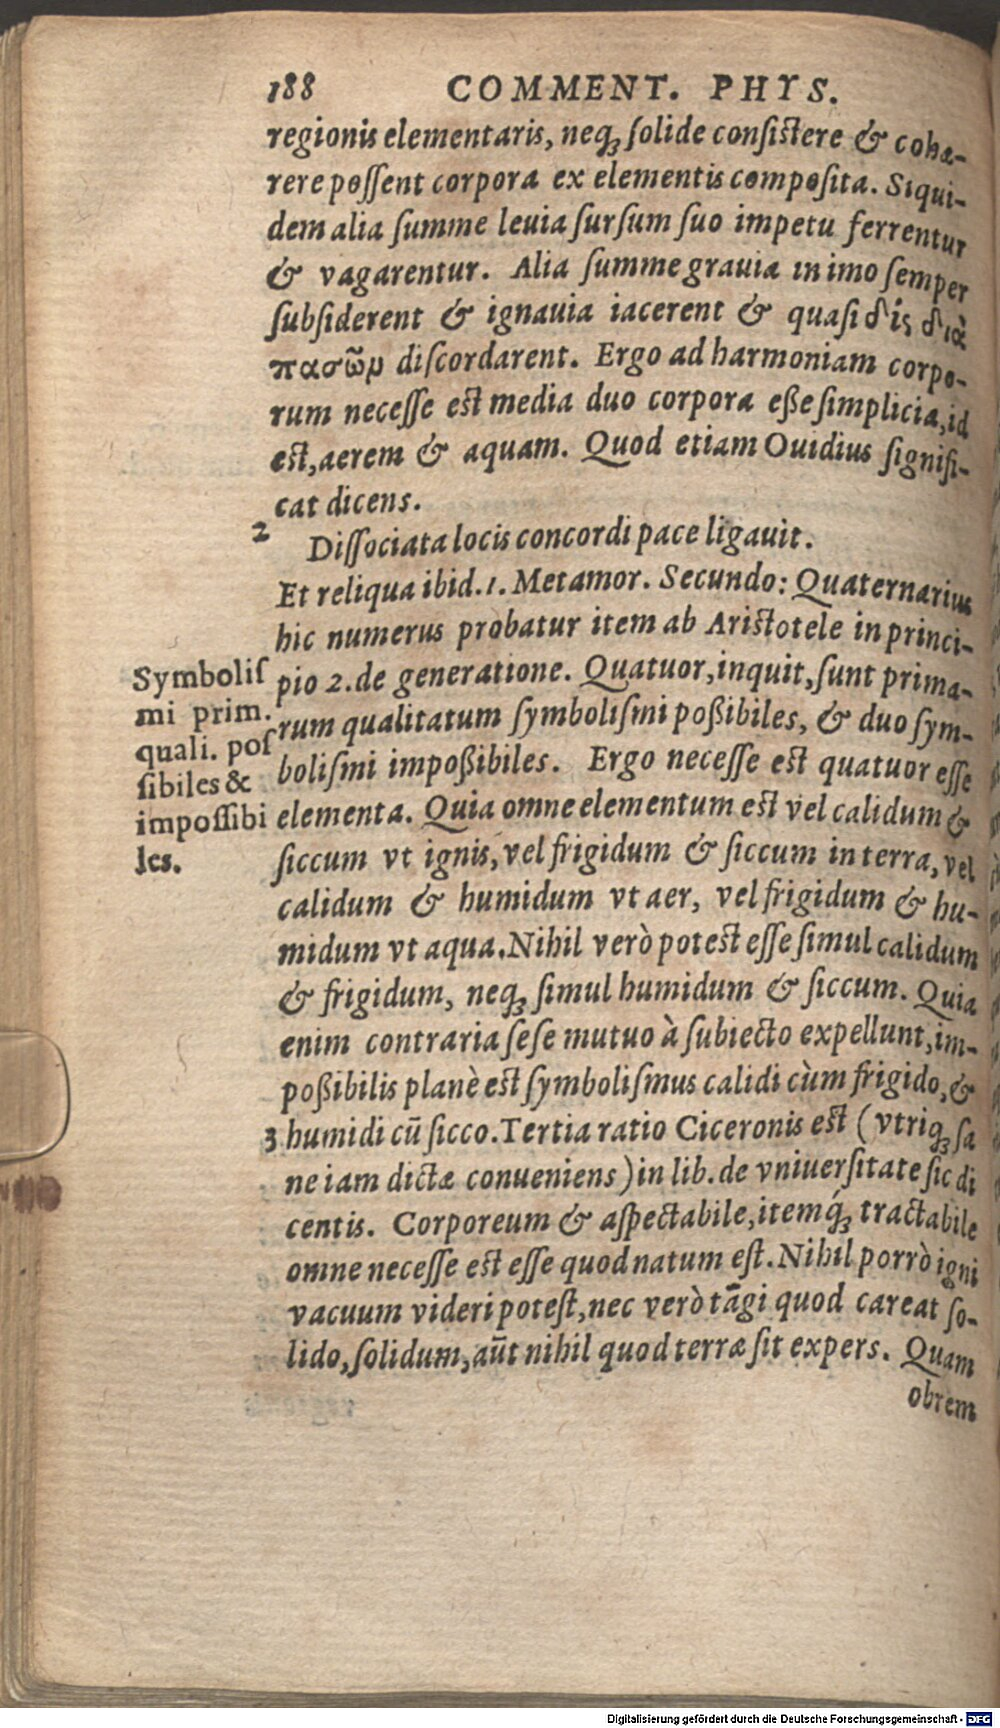 188 COMMENT. PHYS.
regionis elementaris, neqꝫ ſolide conſiſtere & cohæ-
rere poſſent corpora ex elementis compoſita. Siqui-
dem alia ſumme leuia ſurſum ſuo impetu ferrentur
& vagarentur. Alia ſumme grauia in imo ſemper
ſubſiderent & ignauia iacerent & quaſi δὶς διὰ
πασῶμ diſcordarent. Ergo ad harmoniam corpo-
rum neceſſe eſt media duo corpora eße ſimplicia, id
eſt, aerem & aquam. Quod etiam Ouidius ſignifi-
cat dicens.
2 Diſſociata locis concordi pace ligauit.
Et reliqua ibid. 1. Metamor. Secundo: Quaternarius
hic numerus probatur item ab Ariſtotele in princi-
pio 2. de generatione. Quatuor, inquit, ſunt prima-
rum qualitatum ſymboliſmi poßibiles, & duo ſym-
boliſmi impoßibiles. Ergo neceſſe eſt quatuor eſſe
elementa. Quia omne elementum eſt vel calidum &
ſiccum vt ignis, vel frigidum & ſiccum in terra, vel
calidum & humidum vt aer, vel frigidum & hu-
midum vt aqua. Nihil verò poteſt eſſe ſimul calidum
& frigidum, neqꝫ ſimul humidum & ſiccum. Quia
enim contraria ſeſe mutuo à ſubiecto expellunt, im-
poßibilis planè eſt ſymboliſmus calidi cùm frigido, &
3 humidi cū ſicco. Tertia ratio Ciceronis eſt (vtriqꝫ ſa
ne iam dictæ conueniens) in lib. de vniuerſitate ſic di
centis. Corporeum & aſpectabile, itemq́ꝫ tractabile
omne neceſſe eſt eſſe quod natum eſt. Nihil porrò igni
vacuum videri poteſt, nec verò tāgi quod careat ſo-
lido, ſolidum, aūt nihil quod terræ ſit expers. Quam
obrem
Symboliſ
mi prim.
quali. poſ
ſibiles &
impoſſibi
les.
Digitalisierung gefördert durch die Deutsche Forschungsgemeinschaft - DFG